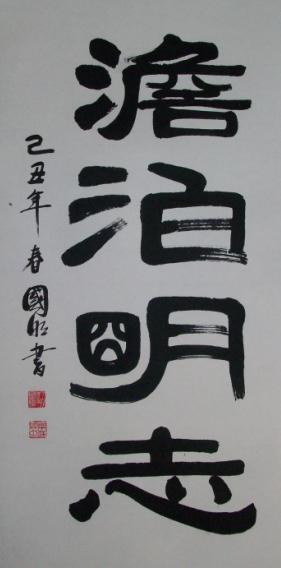 澹泊明志
己丑年春國昭書